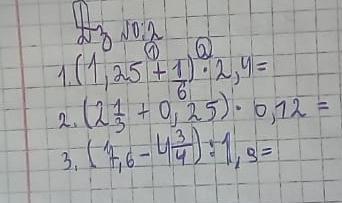 Дз №2
1. (1,25 + 1/6) · 2,4 =
2. (2 1/3 + 0,25) · 0,12 =
3. (7,6 - 4 3/4) : 1,9 =